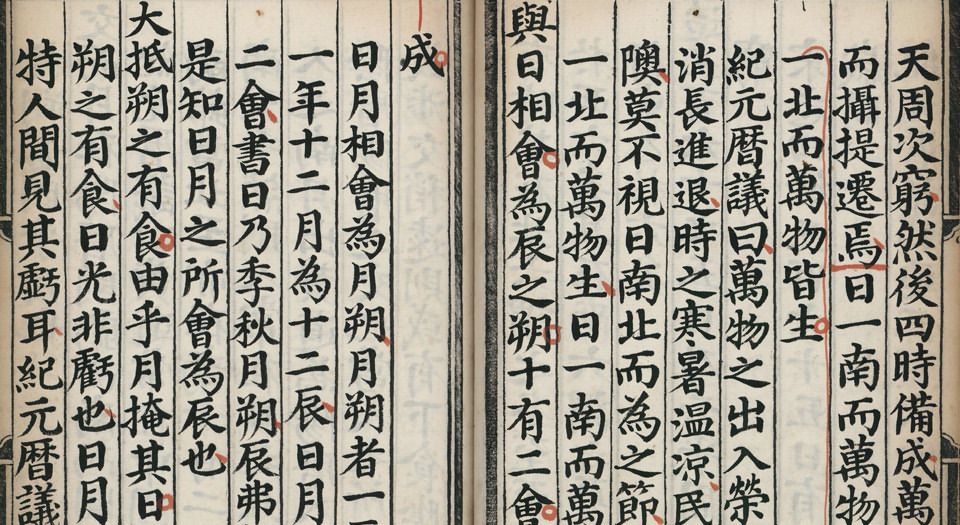 天周次窮然後四時備成萬
而攝提遷焉日一南而萬物
一北而萬物皆生
紀元暦議曰萬物之出入榮
消長進退時之寒暑温凉民
隩莫不視日南北而為之節
一北而萬物生日一南而萬
與日相會為辰之朔十有二會
成
日月相會為月朔月朔者一
一年十二月為十二辰日月
二會書日乃季秋月朔辰弗
是知日月之所會為辰也
大抵朔之有食由乎月掩其日
朔之有食日光非虧也日月
特人間見其虧耳紀元暦議